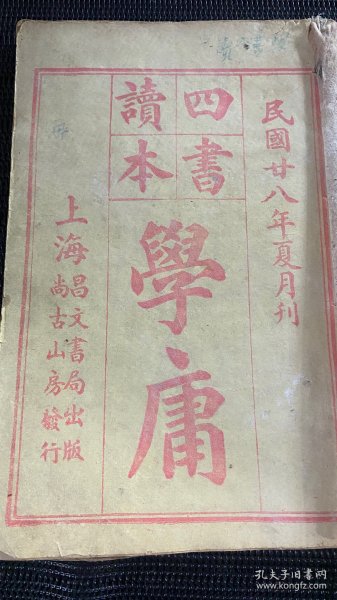 民國廿八年夏月刊
四書
讀本
學庸
上海
昌文書局出版
尚古山房發行
孔夫子旧書网
www.kongfz.com